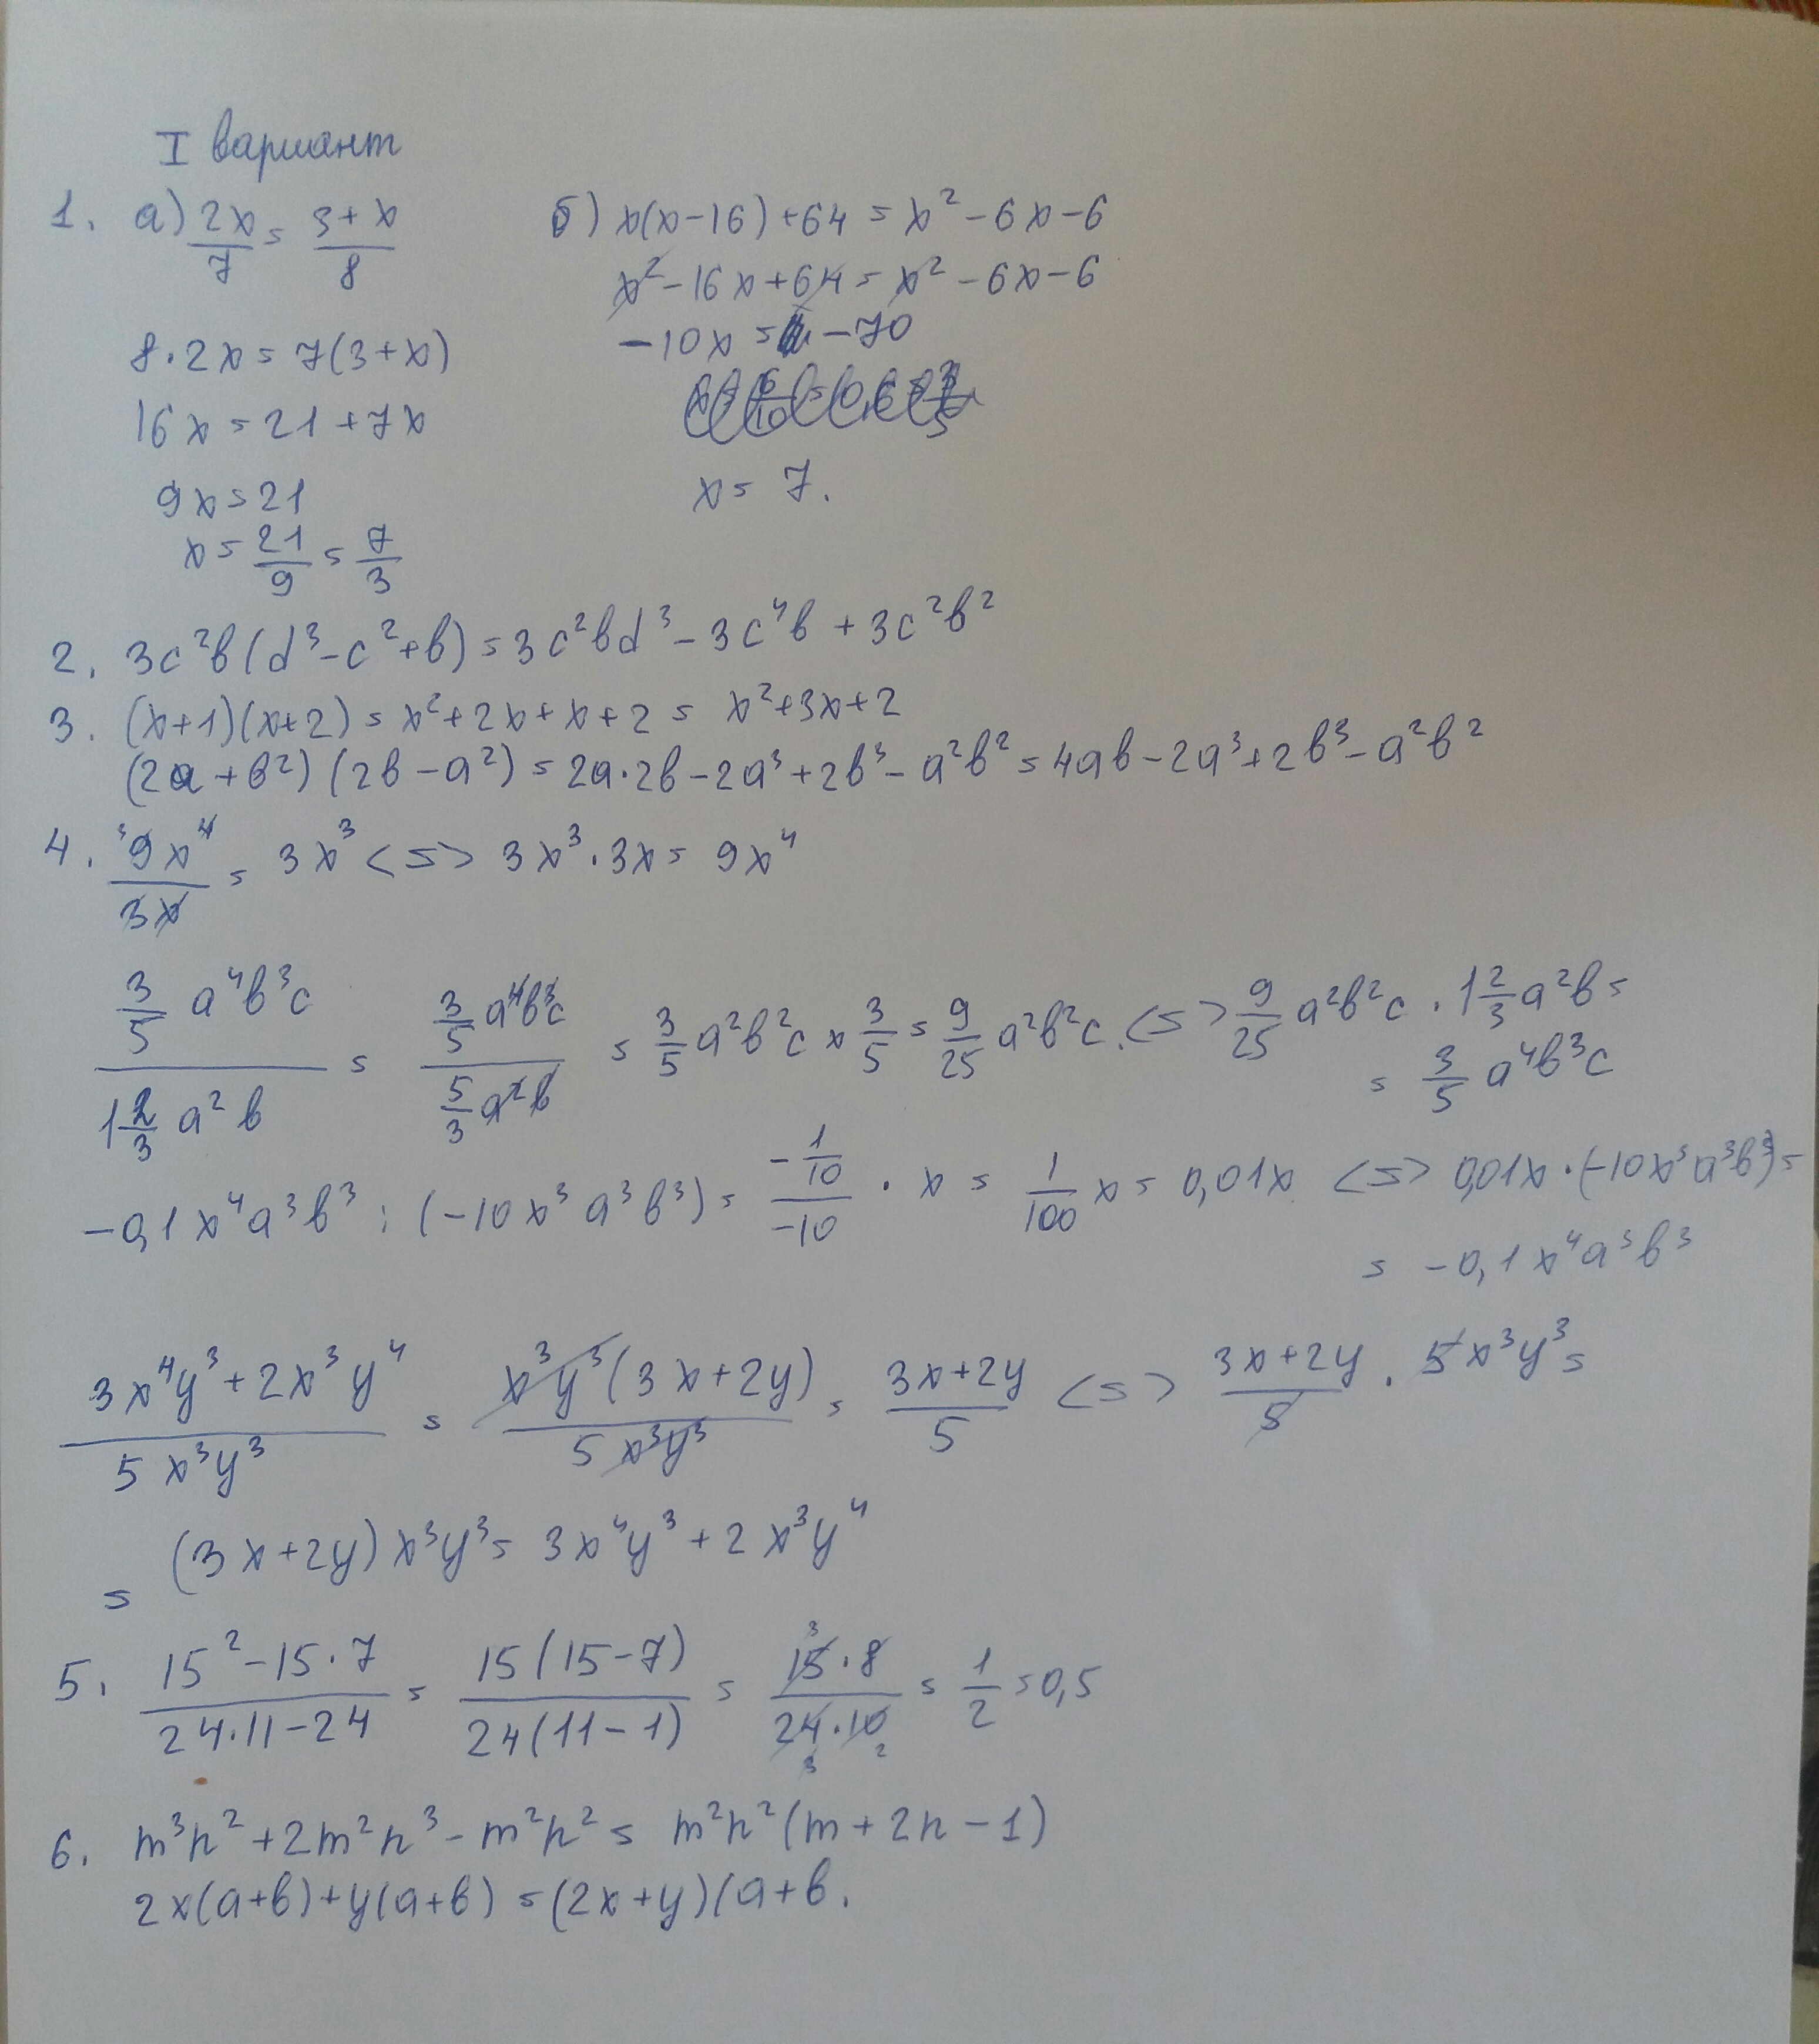 I вариант
1. а) 2x/7 = (3+x)/8
8·2x = 7(3+x)
16x = 21+7x
9x = 21
x = 21/9 = 7/3
б) x(x-16)+64 = x²-6x-6
x²-16x+64 = x²-6x-6
-10x = -70
x = 7.
2. 3c²b(d³-c²+b) = 3c²bd³-3c⁴b+3c²b²
3. (x+1)(x+2) = x²+2x+x+2 = x²+3x+2
(2a+b²)(2b-a²) = 2a·2b-2a³+2b³-a²b² = 4ab-2a³+2b³-a²b²
4. 9x⁴/3x = 3x³ <=> 3x³·3x = 9x⁴
(3/5 a⁴b³c)/(1 2/3 a²b) = (3/5 a⁴b³c)/(5/3 a²b) = 3/5 a²b²c × 3/5 = 9/25 a²b²c. <=> 9/25 a²b²c · 1 2/3 a²b =
= 3/5 a⁴b³c
-0,1x⁴a³b³ : (-10x³a³b³) = (-1/10)/(-10) · x = 1/100 x = 0,01x <=> 0,01x·(-10x³a³b³) =
= -0,1x⁴a³b³
(3x⁴y³+2x³y⁴)/(5x³y³) = x³y³(3x+2y)/(5x³y³) = (3x+2y)/5 <=> (3x+2y)/5 · 5x³y³ =
= (3x+2y)x³y³ = 3x⁴y³+2x³y⁴
5. (15²-15·7)/(24·11-24) = 15(15-7)/(24(11-1)) = (15·8)/(24·10) = 1/2 = 0,5
6. m³n²+2m²n³-m²n² = m²n²(m+2n-1)
2x(a+b)+y(a+b) = (2x+y)(a+b.